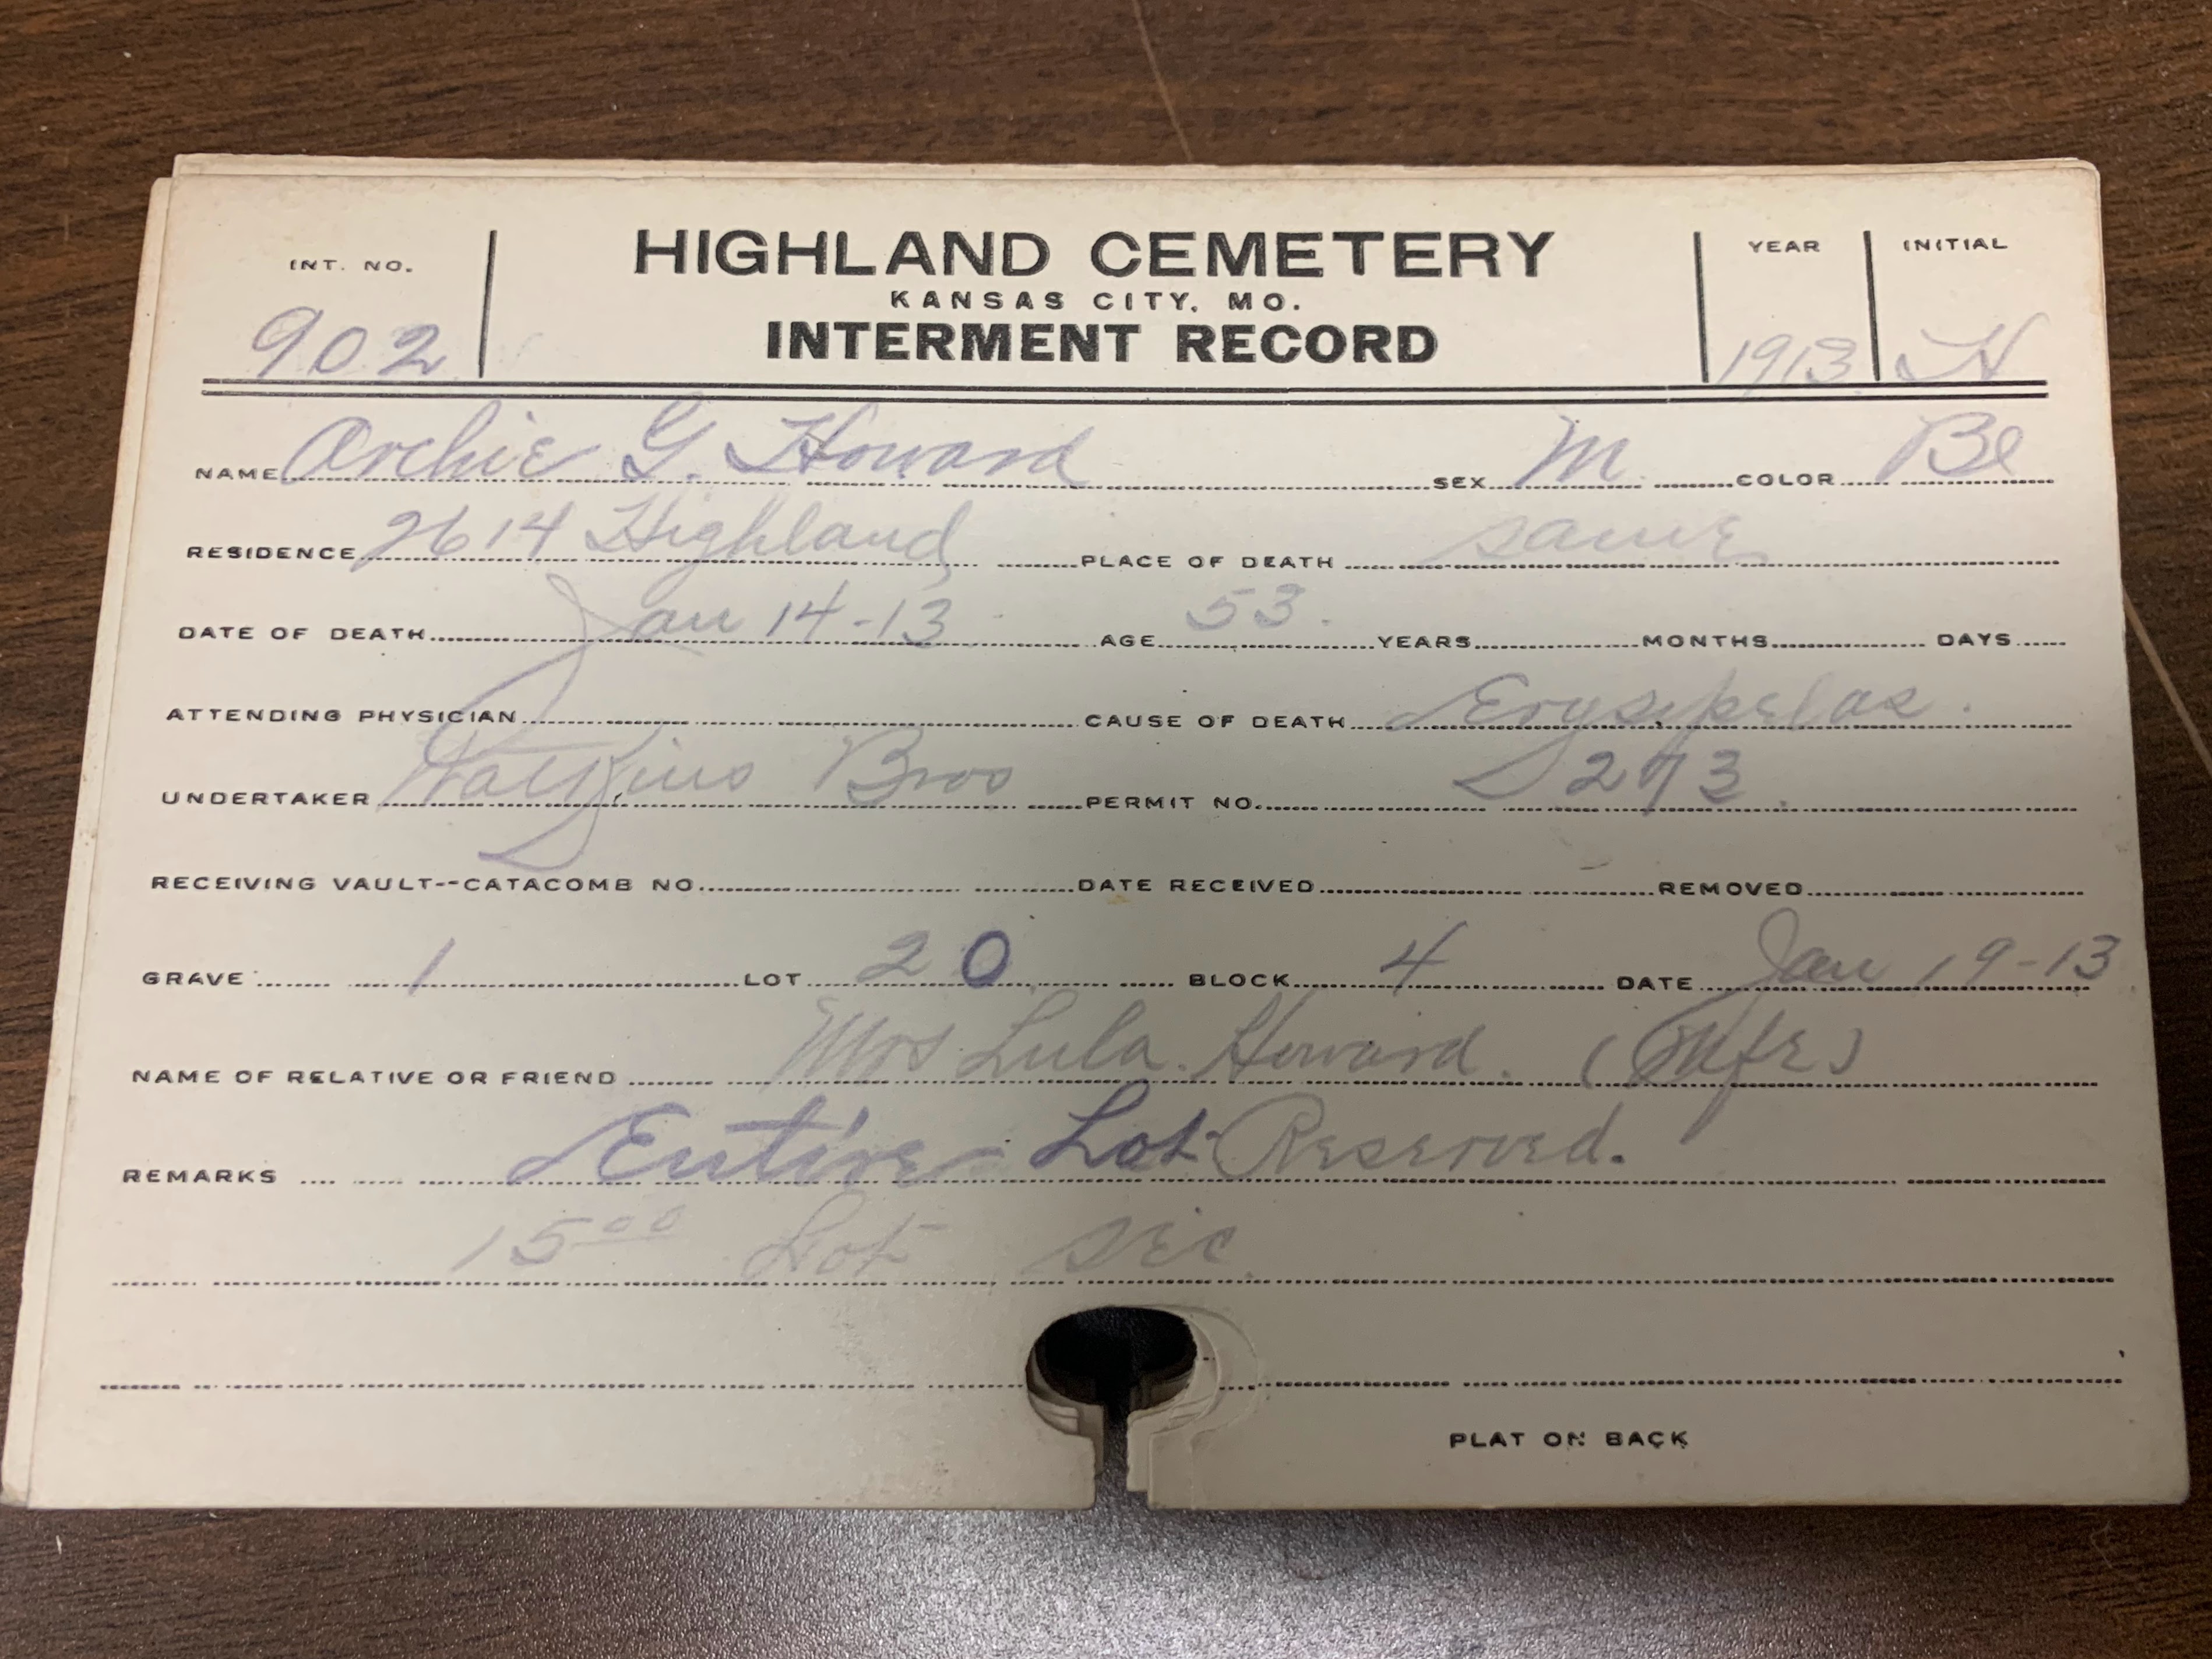 INT. NO. HIGHLAND CEMETERY YEAR INITIAL
KANSAS CITY, MO.
902 INTERMENT RECORD 1913 H
NAME Archie G. Howard SEX M. COLOR Bl
RESIDENCE 2614 Highland PLACE OF DEATH same
DATE OF DEATH Jan 14-13 AGE 53. YEARS MONTHS DAYS
ATTENDING PHYSICIAN CAUSE OF DEATH Erysipelas.
UNDERTAKER Watkins Bros PERMIT NO.
RECEIVING VAULT--CATACOMB NO. DATE RECEIVED REMOVED
GRAVE 1 LOT 20 BLOCK 4 DATE Jan 19-13
NAME OF RELATIVE OR FRIEND Mrs Lula Howard. (Wife)
REMARKS Entire Lot Reserved.
15 00 Lot Sec
PLAT ON BACK